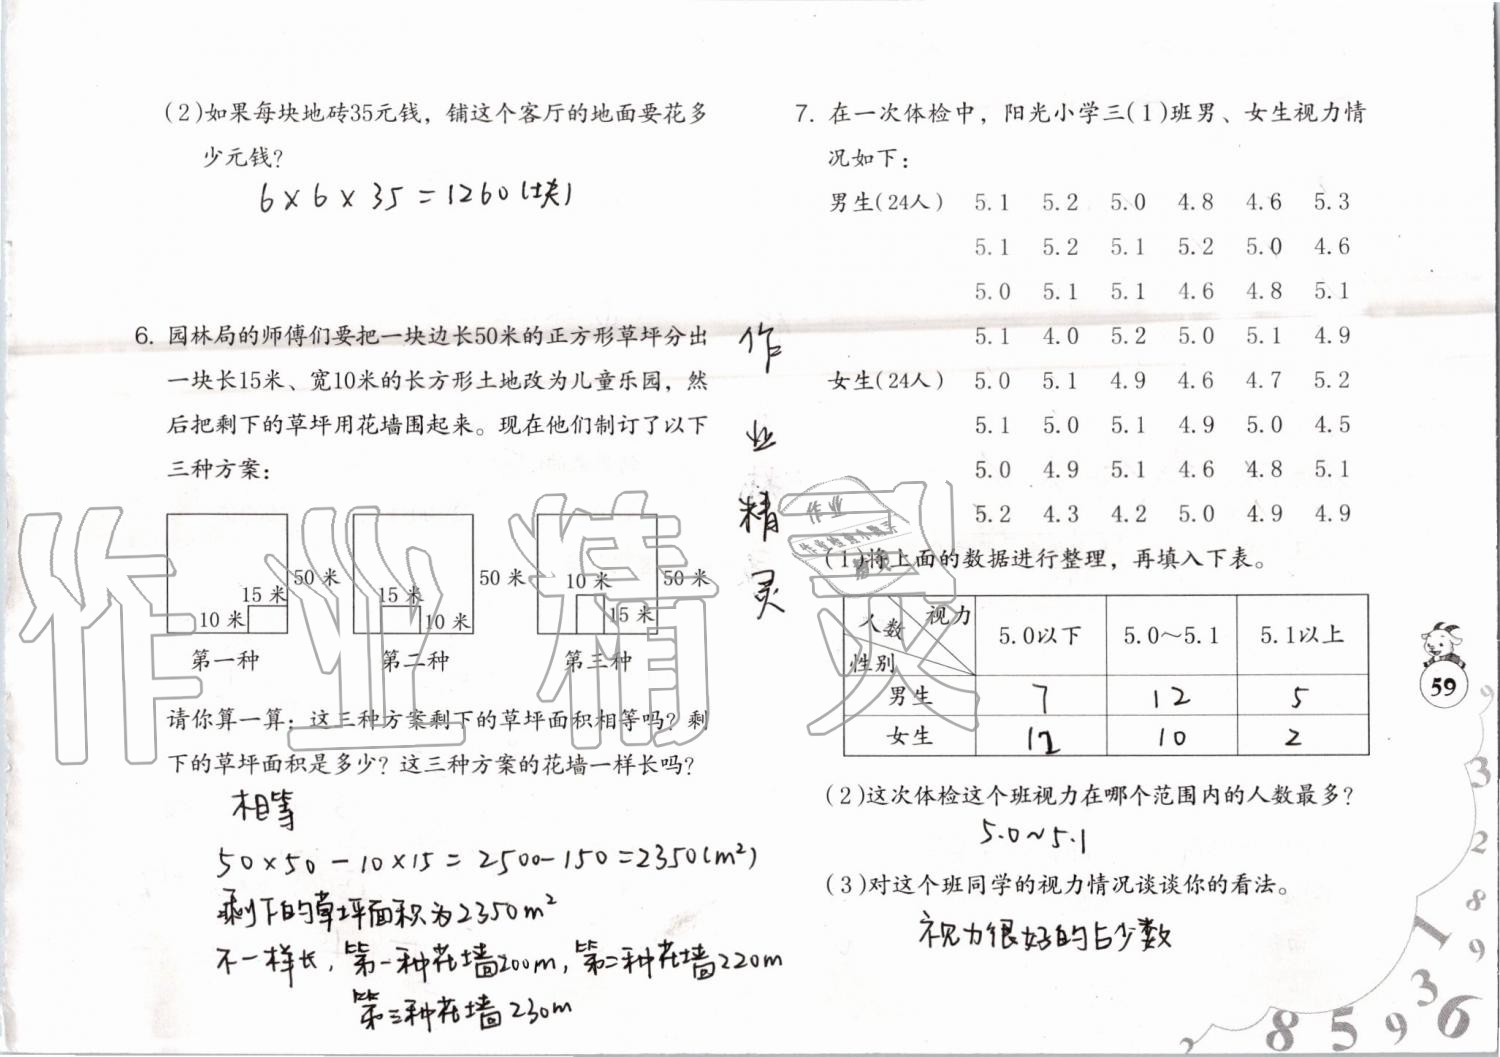 (2)如果每块地砖35元钱，铺这个客厅的地面要花多
少元钱？
6×6×35=1260(块)
6. 园林局的师傅们要把一块边长50米的正方形草坪分出
一块长15米、宽10米的长方形土地改为儿童乐园，然
后把剩下的草坪用花墙围起来。现在他们制订了以下
三种方案：
50 米 50 米 50 米
15 米 15 米 10 米
10 米 10 米 15 米
第一种 第二种 第三种
请你算一算：这三种方案剩下的草坪面积相等吗？剩
下的草坪面积是多少？这三种方案的花墙一样长吗？
相等
50×50-10×15=2500-150=2350(m²)
剩下的草坪面积为2350m²
不一样长，第一种花墙200m，第二种花墙220m
第三种花墙230m
作业精灵
作业精灵
作业
7. 在一次体检中，阳光小学三(1)班男、女生视力情
况如下：
男生(24人) 5.1 5.2 5.0 4.8 4.6 5.3
5.1 5.2 5.1 5.2 5.0 4.6
5.0 5.1 5.1 4.6 4.8 5.1
5.1 4.0 5.2 5.0 5.1 4.9
女生(24人) 5.0 5.1 4.9 4.6 4.7 5.2
5.1 5.0 5.1 4.9 5.0 4.5
5.0 4.9 5.1 4.6 4.8 5.1
5.2 4.3 4.2 5.0 4.9 4.9
(1)将上面的数据进行整理，再填入下表。
人数 视力 性别 5.0以下 5.0～5.1 5.1以上
男生 7 12 5
女生 12 10 2
(2)这次体检这个班视力在哪个范围内的人数最多？
5.0～5.1
(3)对这个班同学的视力情况谈谈你的看法。
视力很好的占少数
59
9
3
2
8
1
9
3
6
8 5 9
2